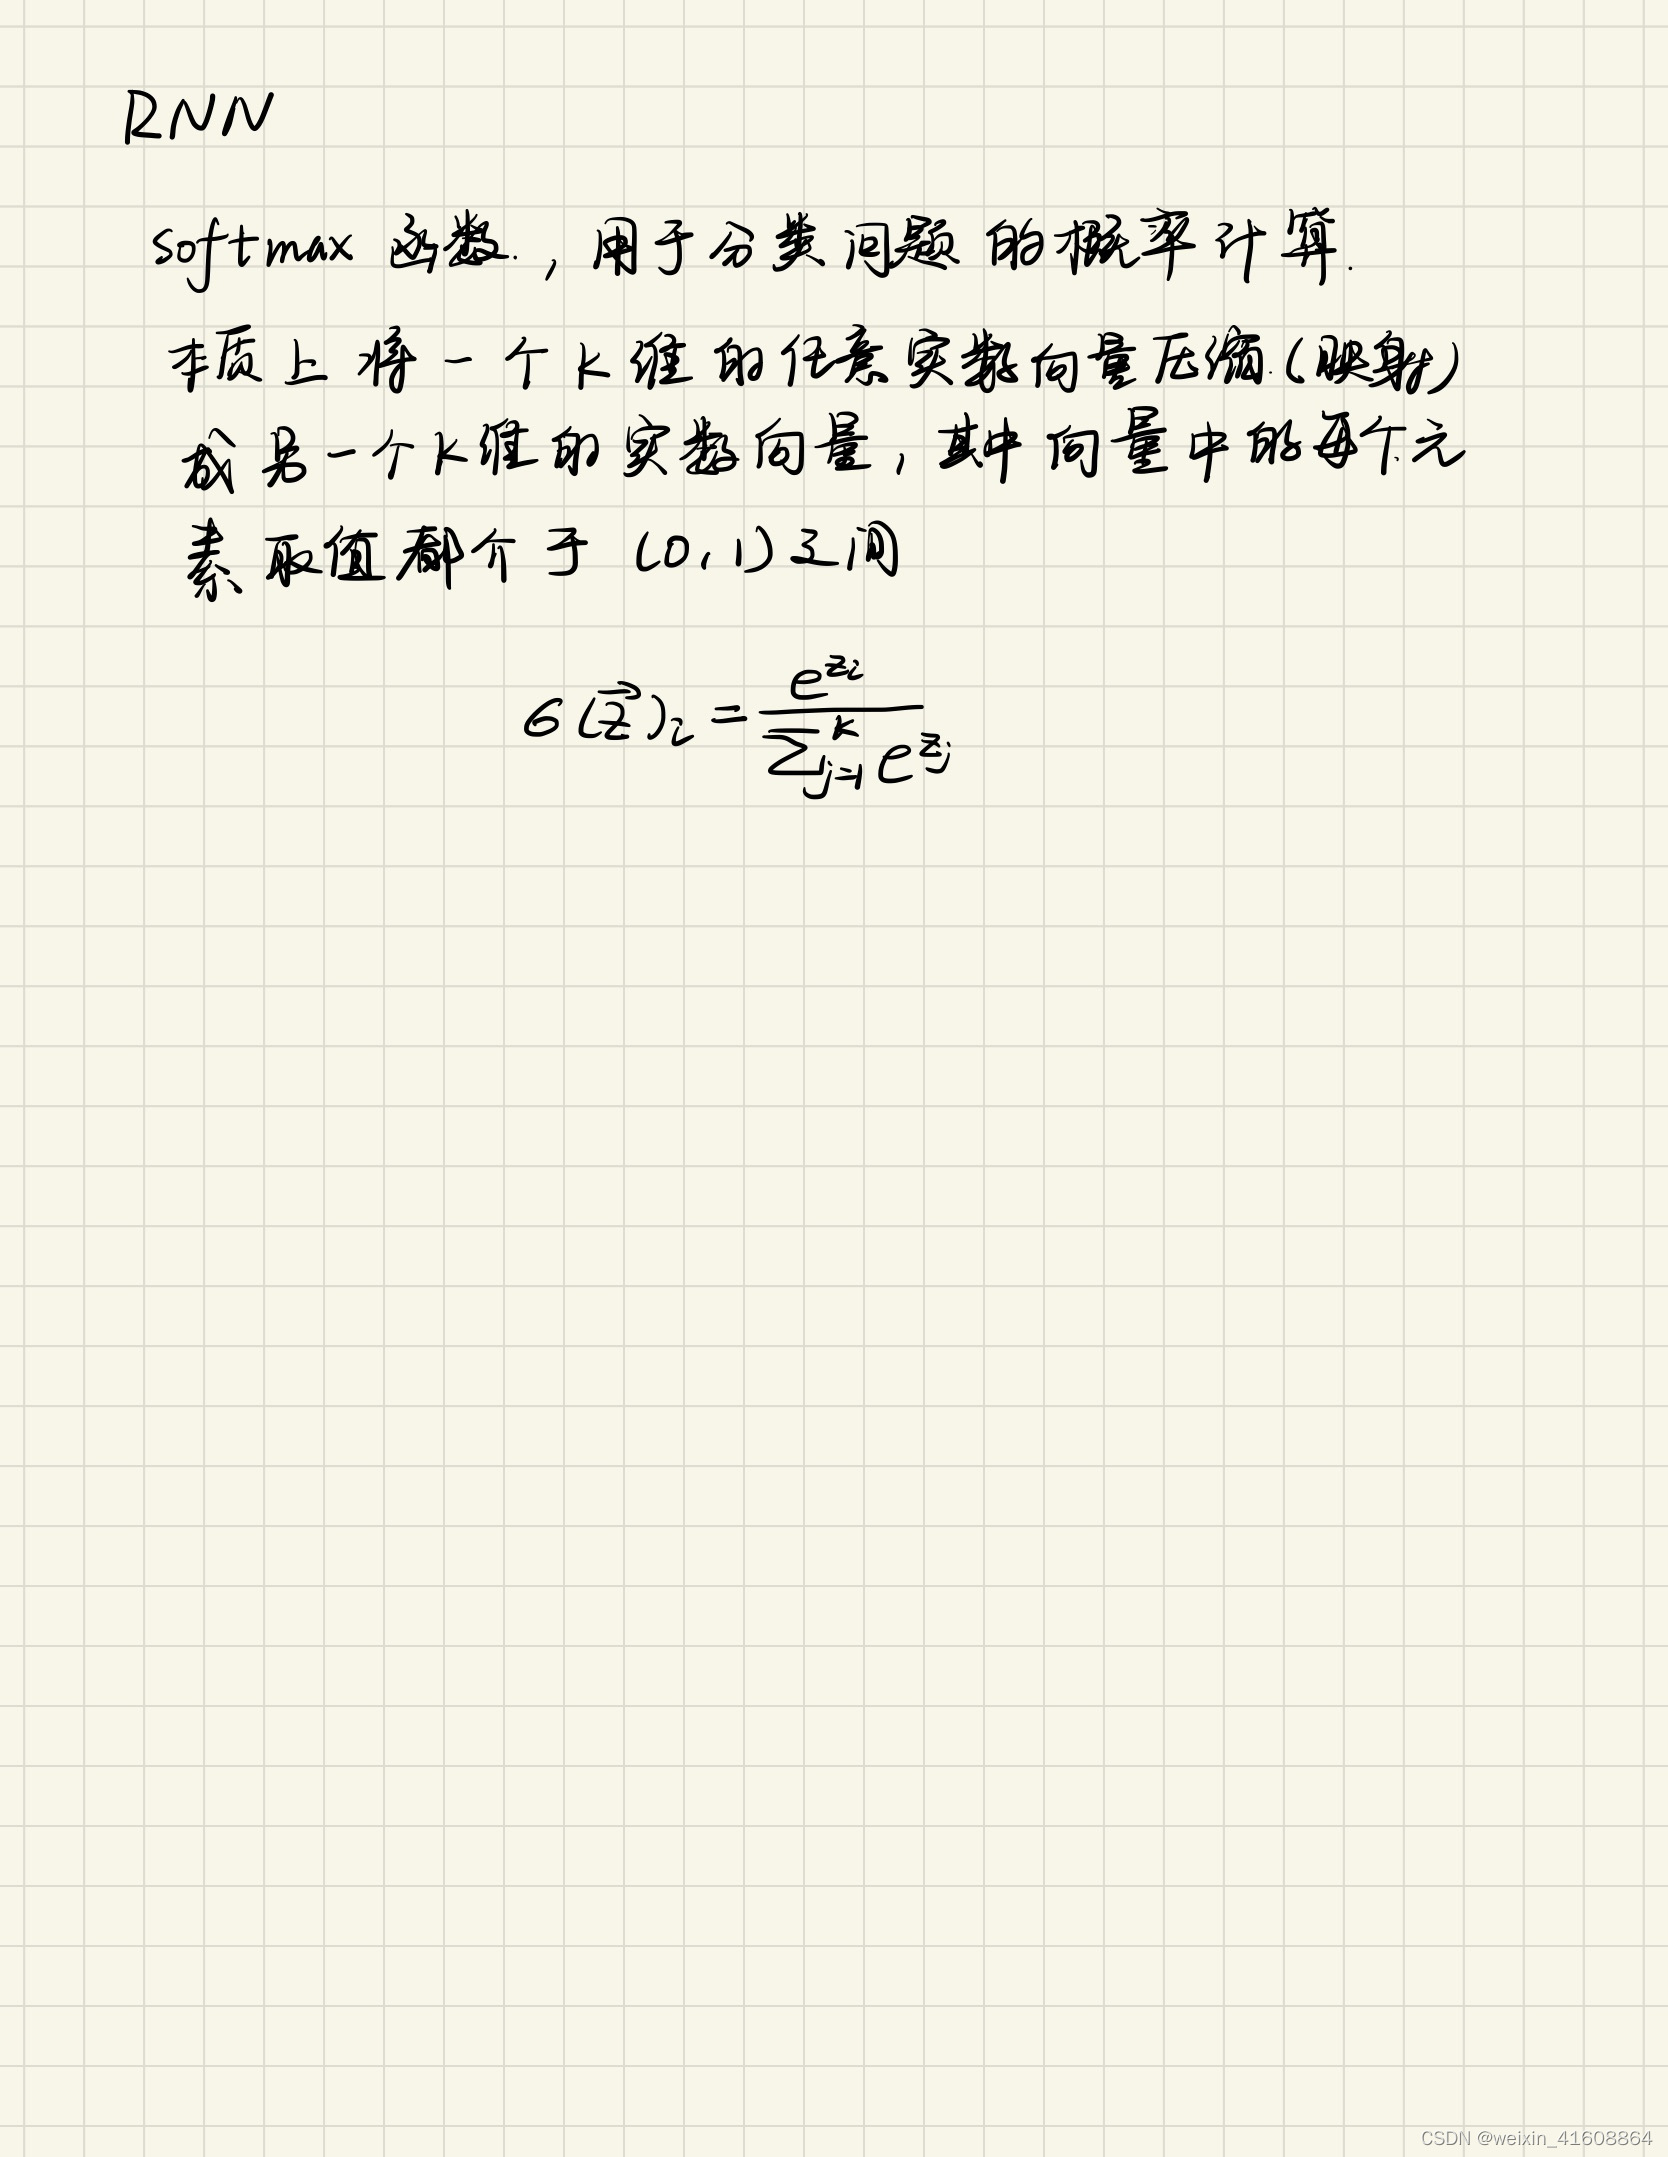 RNN
softmax 函数., 用于分类问题的概率计算.
本质上将一个K维的任意实数向量压缩.(映射)
成另一个K维的实数向量, 其中向量中的每个元
素取值都介于 (0, 1) 之间
σ(\vec{z})_i = \frac{e^{z_i}}{\sum_{j=1}^{K} e^{z_j}}
CSDN @weixin_41608864